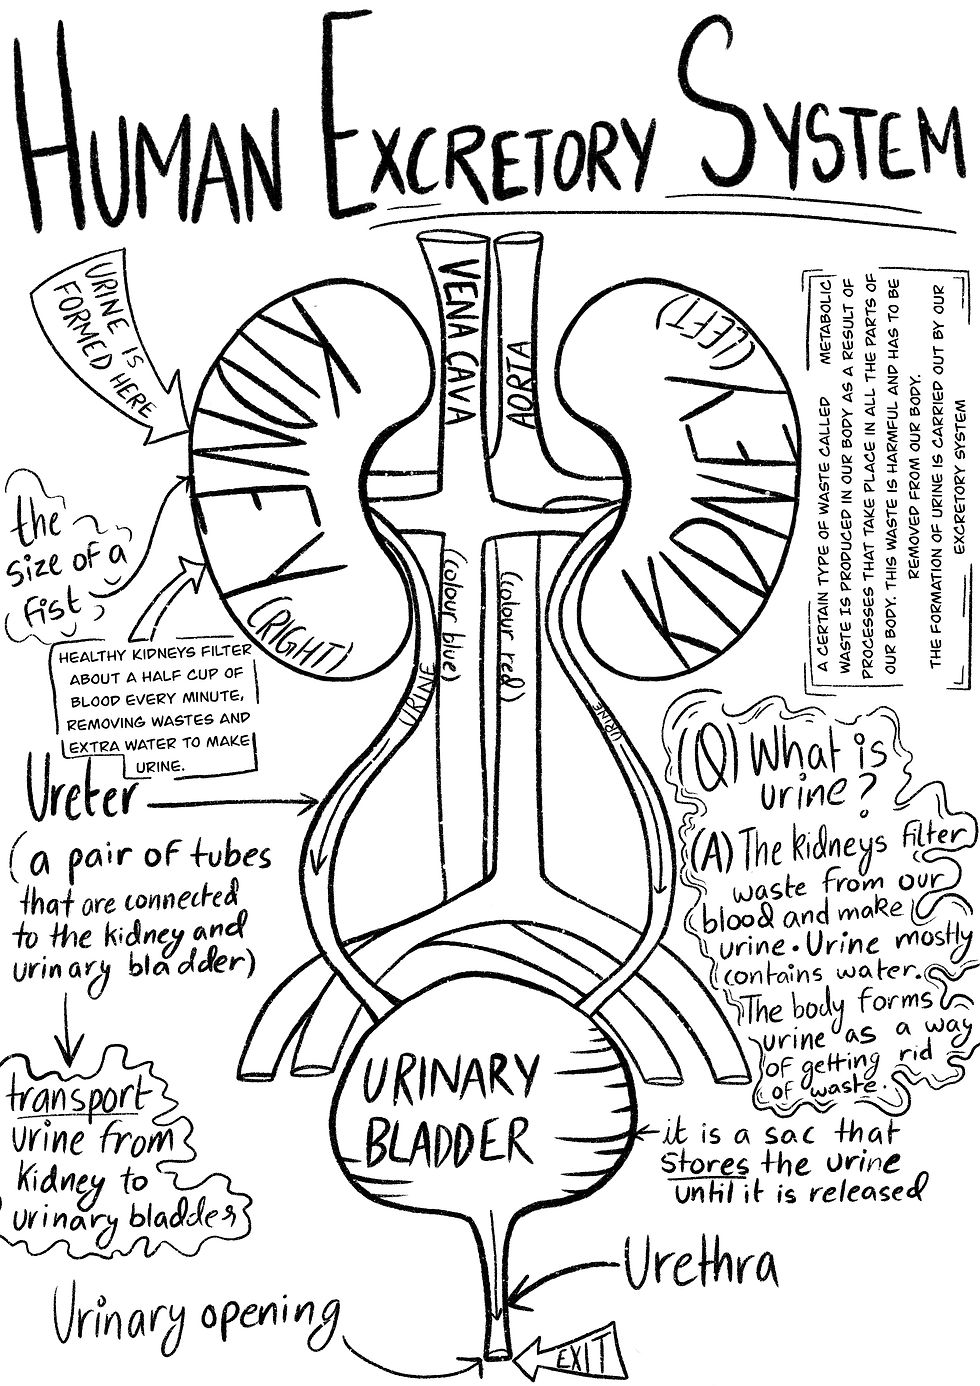 HUMAN EXCRETORY SYSTEM
URINE IS
FORMED HERE
VENA CAVA
AORTA
KIDNEY
(RIGHT)
KIDNEY
(LEFT)
(colour blue)
(colour red)
URINE
URINE
the
size of a
fist
HEALTHY KIDNEYS FILTER
ABOUT A HALF CUP OF
BLOOD EVERY MINUTE,
REMOVING WASTES AND
EXTRA WATER TO MAKE
URINE.
A CERTAIN TYPE OF WASTE CALLED METABOLIC
WASTE IS PRODUCED IN OUR BODY AS A RESULT OF
PROCESSES THAT TAKE PLACE IN ALL THE PARTS OF
OUR BODY. THIS WASTE IS HARMFUL AND HAS TO BE
REMOVED FROM OUR BODY.
THE FORMATION OF URINE IS CARRIED OUT BY OUR
EXCRETORY SYSTEM
Ureter
(a pair of tubes
that are connected
to the kidney and
urinary bladder)
transport
urine from
kidney to
urinary bladder
(Q) What is
urine?
(A) The kidneys filter
waste from our
blood and make
urine. Urine mostly
contains water.
The body forms
urine as a way
of getting rid
of waste.
URINARY
BLADDER
it is a sac that
stores the urine
until it is released
Urethra
Urinary opening
EXIT